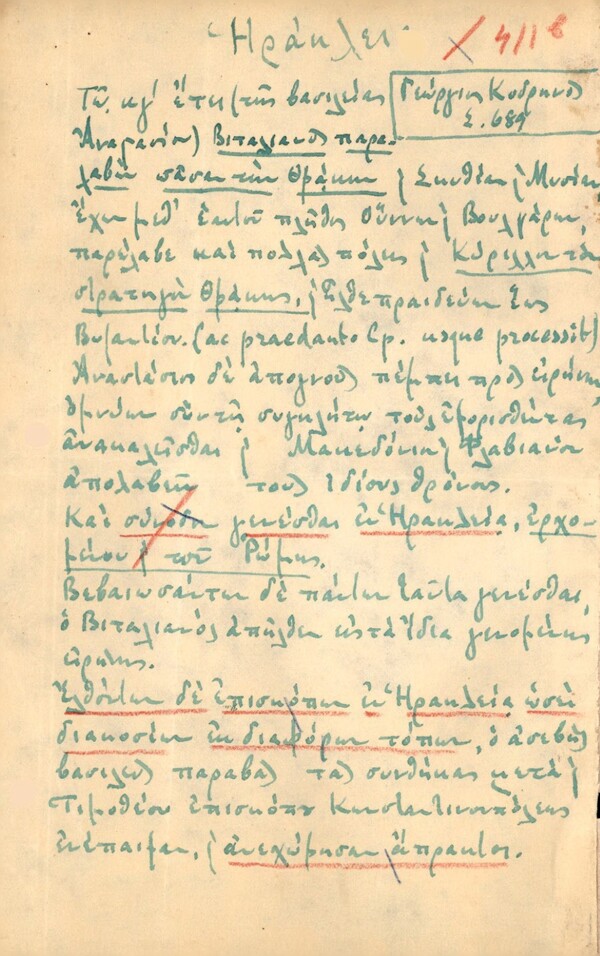 Ἡράκλει·
4/1β
Τῷ κγʹ ἔτει (τῆς βασιλείας
Γεώργιος Κεδρηνὸς
Σ. 689
Ἀναστασίου) Βιταλιανὸς παρα-
λαβὼν πᾶσαν τὴν Θρᾴκην ϗ Σκυθίαν ϗ Μυσίαν
ἔχων μεθ' ἑαυτοῦ πλῆθος Οὔννων ϗ Βουλγάρων,
παρέλαβε καὶ πολλὰς πόλεις ϗ Κύριλλον τὸν
στρατηγὸν Θρᾴκης, ϗ ἦλθε πραιδεύων ἕως
Βυζαντίου. (ac praedando Cp. usque processit)
Ἀναστάσιος δὲ ἀπογνοὺς πέμπει πρὸς εἰρήνην
ὀμνύων σὺν τῇ συγκλήτῳ τοὺς ἐξορισθέντας
ἀνακαλεῖσθαι ϗ Μακεδόνιον ϗ Φλαβιανὸν
ἀπολαβεῖν τοὺς ἰδίους θρόνους.
Καὶ σύνοδον γενέσθαι ἐν Ἡρακλείᾳ, ἐρχο-
μένου ϗ τοῦ Ῥώμης.
Βεβαιωσάντων δὲ πάντων ταῦτα γενέσθαι,
ὁ Βιταλιανὸς ἀπῆλθεν εἰς τὰ ἴδια γενομένης
εἰρήνης.
Ἐλθόντων δὲ ἐπισκόπων ἐν Ἡρακλείᾳ ὡσεὶ
διακοσίων ἐκ διαφόρων τόπων, ὁ ἀσεβὴς
βασιλεὺς παραβὰς τὰς συνθήκας μετὰ ϗ
Τιμοθέου ἐπισκόπου Κωνσταντινουπόλεως
ἐνέπαιξαν, ϗ ἀνεχώρησαν ἄπρακτοι.